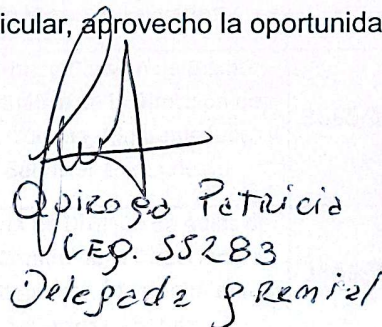 icular, aprovecho la oportunida
Quiroga Patricia
LEG. 55283
Delegada gremial